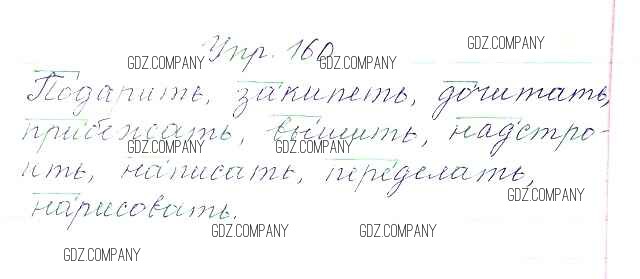 Упр. 160
GDZ.COMPANY
GDZ.COMPANY GDZ.COMPANY
Подарить, закипеть, дочитать,
GDZ.COMPANY
прибежать, вышить, надстро-
GDZ.COMPANY GDZ.COMPANY
ить, написать, переделать,
GDZ.COMPANY
нарисовать.
GDZ.COMPANY GDZ.COMPANY
GDZ.COMPANY